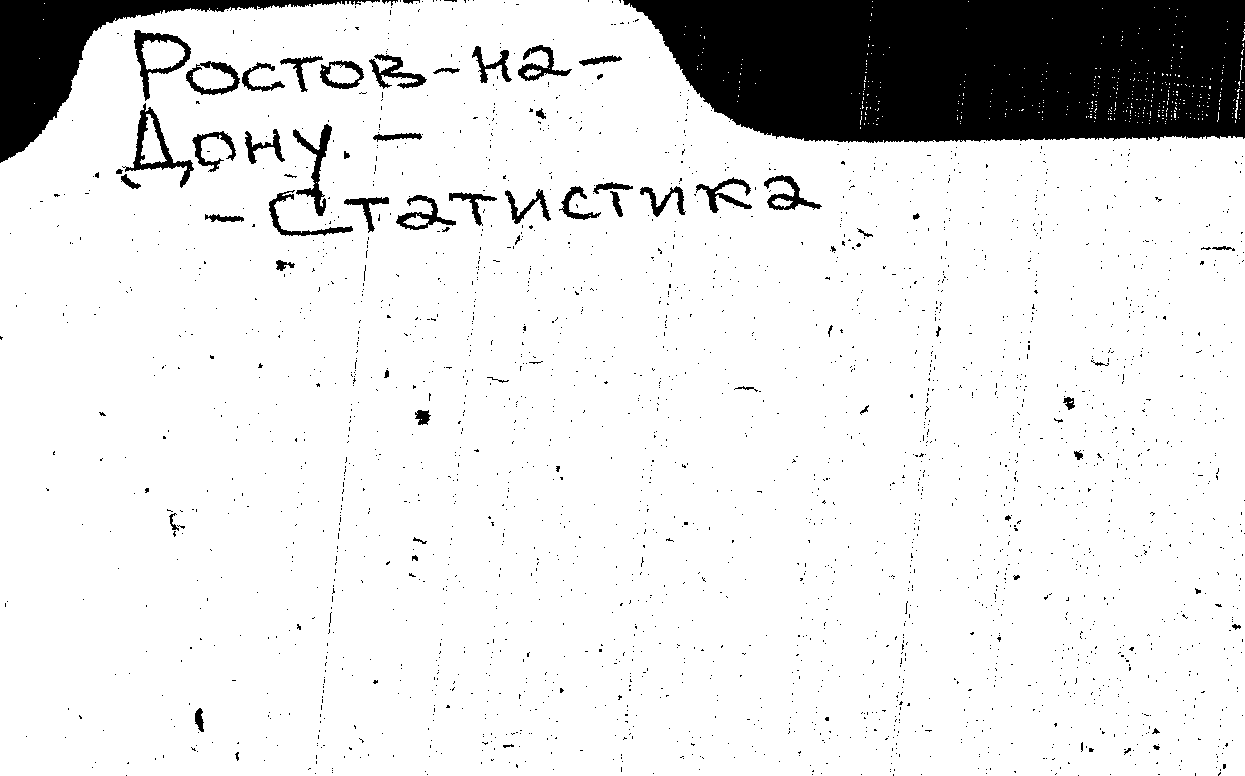 Ростов-на-
Дону. -
- Статистика